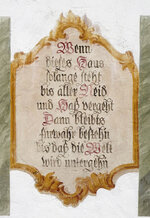 Wenn
dieses Haus
solange steht
bis aller Neid
und Haß vergeht
Dann bleibts
fürwahr bestehn
bis daß die Welt
wird untergehn